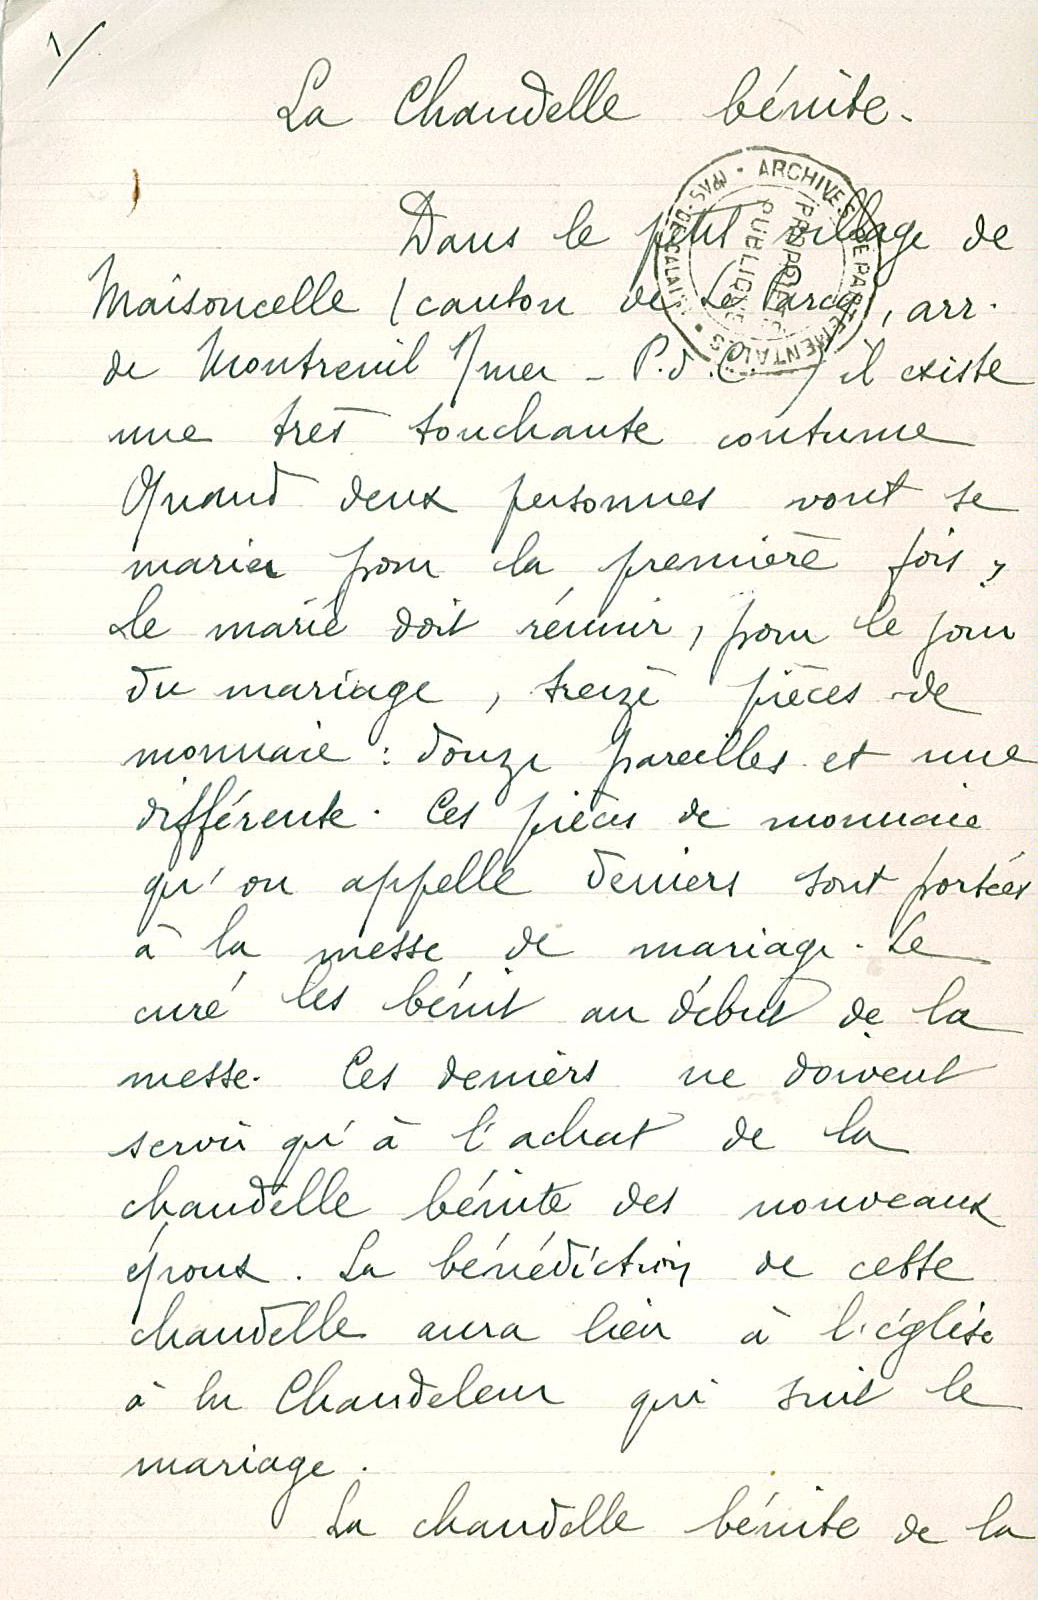 1/
La Chandelle bénite.
Dans le petit village de
Maisoncelle (canton de Le Parcq, arr.
de Montreuil s/mer - P.d.C.) il existe
une très touchante coutume
Quand deux personnes vont se
marier pour la première fois,
Le marié doit réunir, pour le jour
du mariage, treize pièces de
monnaie : douze pareilles et une
différente. Ces pièces de monnaie
qu'on appelle deniers sont portées
à la messe de mariage. Le
curé les bénit au début de la
messe. Ces deniers ne doivent
servir qu'à l'achat de la
chandelle bénite des nouveaux
époux. La bénédiction de cette
chandelle aura lieu à l'église
à la Chandeleur qui suit le
mariage.
La chandelle bénite de la
ARCHIVES DEPARTEMENTALES
PAS-DE-CALAIS
PROPRIÉTÉ
PUBLIQUE